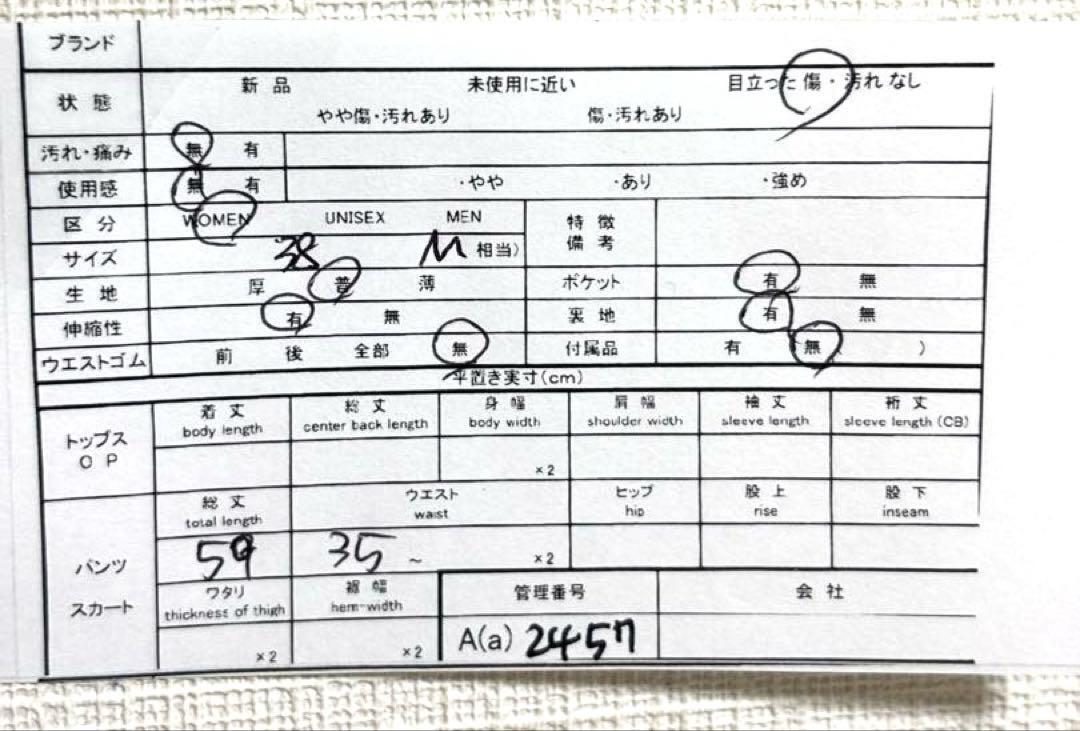 ブランド
状態 新品 未使用に近い 目立った傷・汚れなし
やや傷・汚れあり 傷・汚れあり
汚れ・痛み 無 有
使用感 無 有 ・やや ・あり ・強め
区分 WOMEN UNISEX MEN 特徴
備考
サイズ 38 M 相当)
生地 厚 普 薄 ポケット 有 無
伸縮性 有 無 裏地 有 無
ウエストゴム 前 後 全部 無 付属品 有 無( )
平置き実寸(cm)
トップス
OP
着丈 総丈 身幅 肩幅 袖丈 裄丈
body length center back length body width shoulder width sleeve length sleeve length (CB)
×2
パンツ
スカート
総丈 ウエスト ヒップ 股上 股下
total length waist hip rise inseam
59 35 ~ ×2
ワタリ 裾幅 管理番号 会社
thickness of thigh hem-width
×2 ×2 A(a) 2457